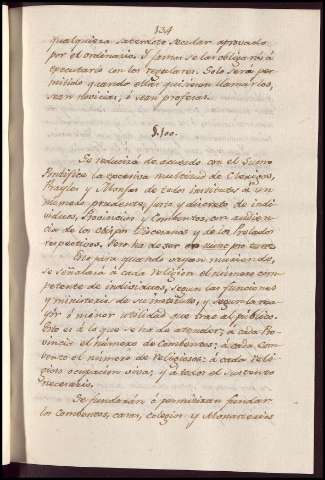 134
qualquiera sacerdote secular aprovado
por el ordinario. Y jamas se les obligarà à
executarlo con los regulares. Solo serà per
mitido quando ellas quisieren llamarlos,
sean novicias, ó sean profesas.
§. 100.
Se reducirà de acuerdo con el Sumo
Pontifice la excesiva multitud de Clerigos,
Frayles y Monjas de todos Institutos à un
numero prudente, justo y discreto de indi
viduos, Provincias y Conventos, con audien
cia de los Obispos Diocesanos y de los Prelados
respectivos. Pero ha de ser
Esto para quando vayan muriendo,
se señalarà à cada religion el número com
petente de individuos, segun las funciones
y ministerio de su instituto, y segun la ma
yor ó menor utilidad que trae al público.
Esto es à lo que se ha de atender; à cada Pro
vincia el número de combentos; à cada Com
bento el número de religiosos: à cada reli
gioso ocupacion viva; y à todos el sustento
necesario.
Se fundaràn, ó permitiran fundar
los combentos, casas, colegios y Monasterios